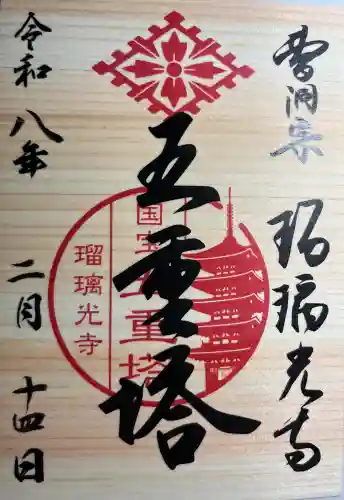 曹洞宗
瑠璃光寺
五重塔
国宝五重塔
瑠璃光寺
令和八年
二月
十四日